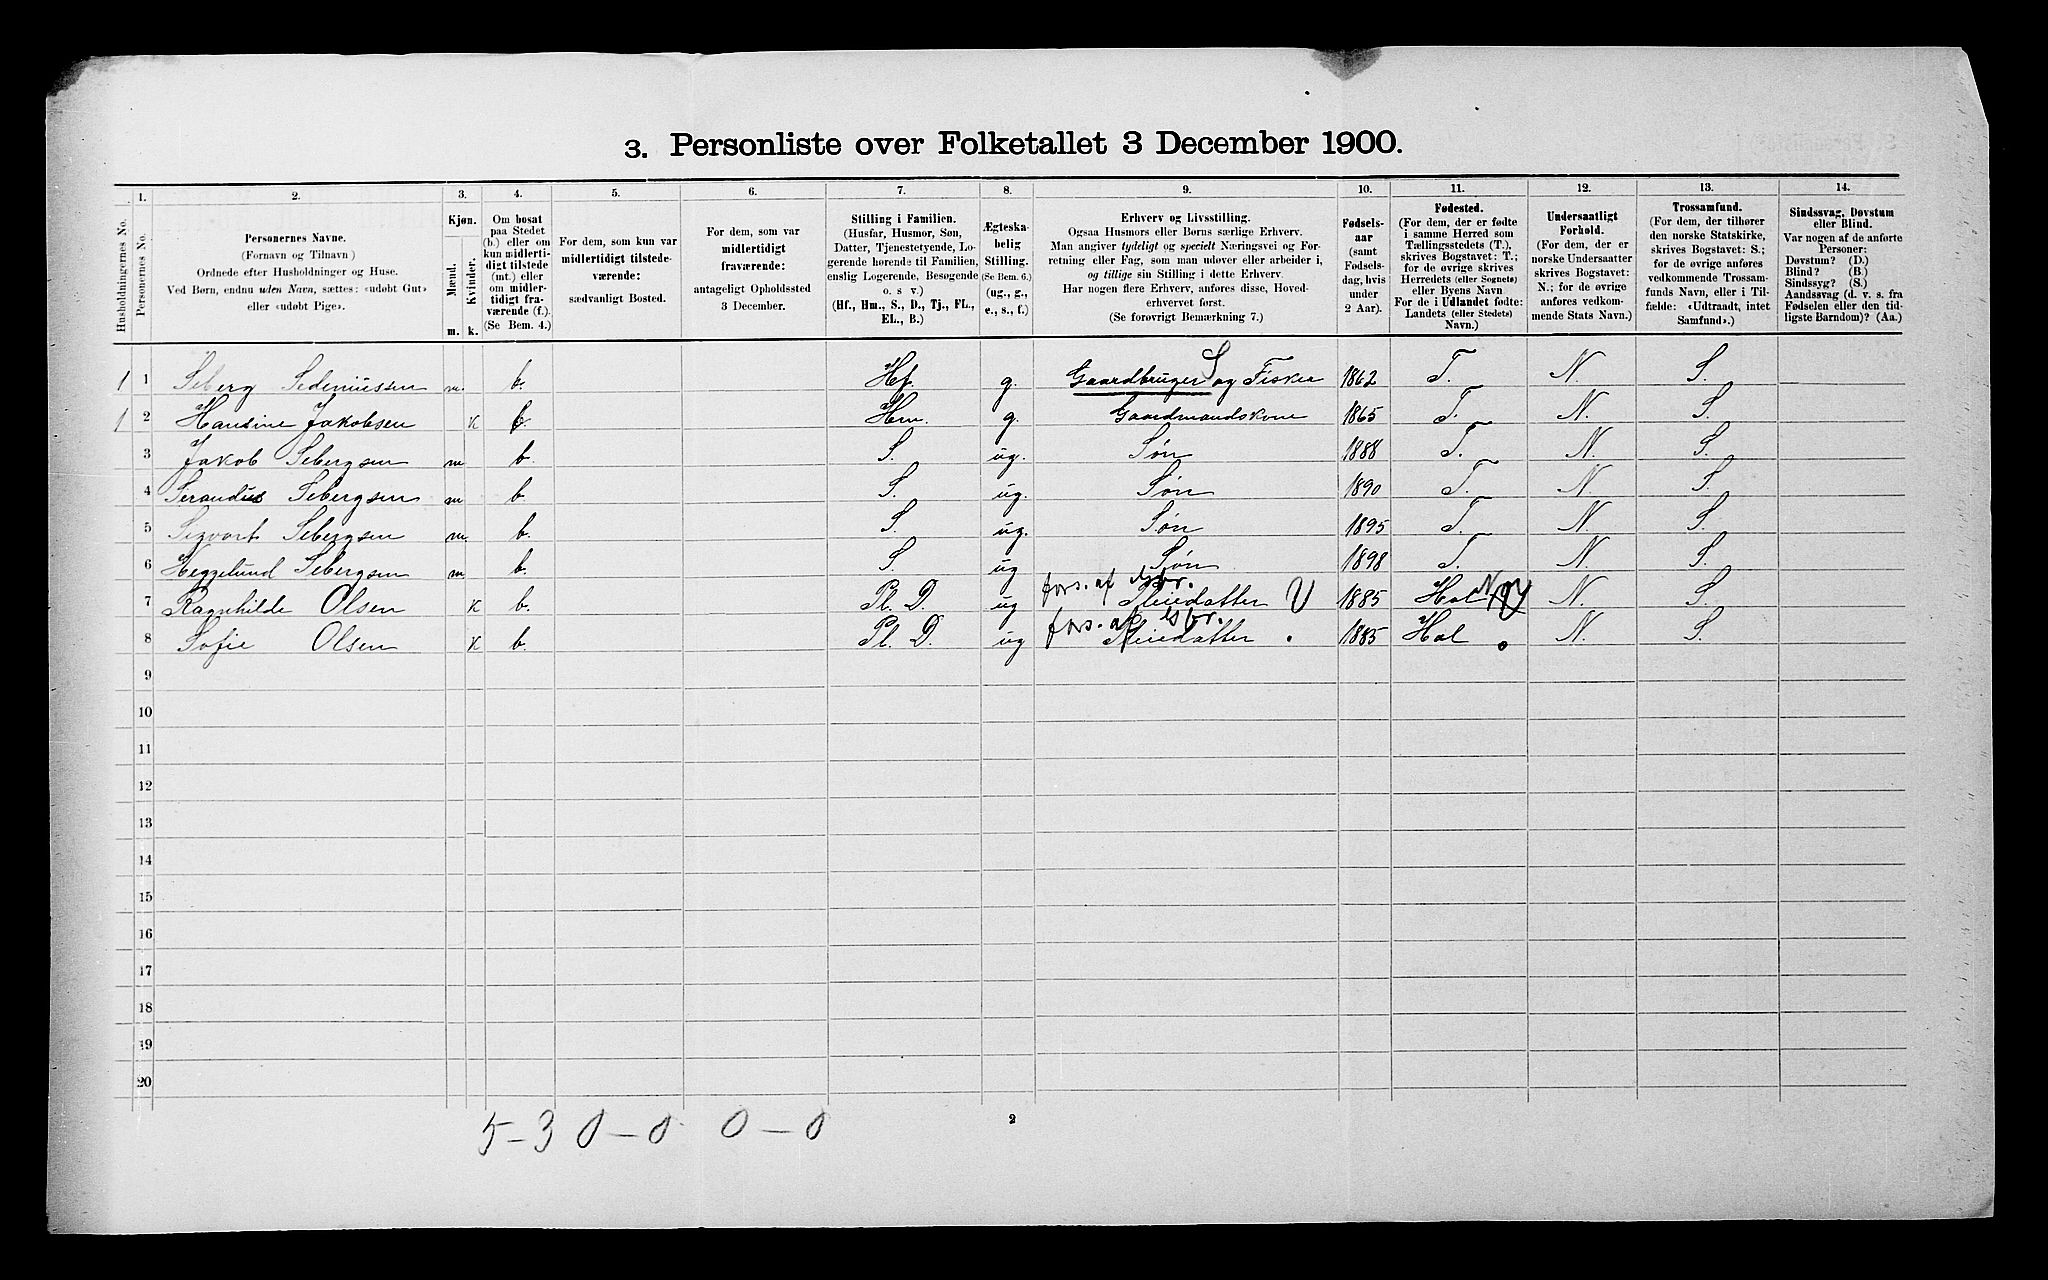 3. Personliste over Folketallet 3 December 1900.
Husholdningernes No.
1.
Personernes No.
2.
Personernes Navne.
(Fornavn og Tilnavn)
Ordnede efter Husholdninger og Huse.
Ved Børn, endnu uden Navn, sættes: «udøbt Gut»
eller «udøbt Pige».
3.
Kjøn.
Mænd.
Kvinder.
m. k.
4.
Om bosat
paa Stedet
(b.) eller om
kun midlerti-
digt tilstede
(mt.) eller
om midler-
tidigt fra-
værende (f.).
(Se Bem. 4.)
5.
For dem, som kun var
midlertidigt tilstede-
værende:
sædvanligt Bosted.
6.
For dem, som var
midlertidigt
fraværende:
antageligt Opholdssted
3 December.
7.
Stilling i Familien.
(Husfar, Husmor, Søn,
Datter, Tjenestetyende, Lo-
gerende hørende til Familien,
enslig Logerende, Besøgende
o. s v.)
(Hf., Hm., S., D., Tj., FL.,
EL., B.)
8.
Ægteska-
belig
Stilling.
(Se Bem. 6.)
(ug., g.,
e., s., f.)
9.
Erhverv og Livsstilling.
Ogsaa Husmors eller Børns særlige Erhverv.
Man angiver tydeligt og specielt Næringsvei og For-
retning eller Fag, som man udøver eller arbeider i,
og tillige sin Stilling i dette Erhverv.
Har nogen flere Erhverv, anføres disse, Hoved-
erhvervet først.
(Se forøvrigt Bemærkning 7.)
10.
Fødsels-
aar
(samt
Fødsels-
dag, hvis
under
2 Aar).
11.
Fødested.
(For dem, der er fødte
i samme Herred som
Tællingsstedets (T.),
skrives Bogstavet: T.;
for de øvrige skrives
Herredets (eller Sognets)
eller Byens Navn
For de i Udlandet fødte:
Landets (eller Stedets)
Navn.)
12.
Undersaatligt
Forhold.
(For dem, der er
norske Undersaatter
skrives Bogstavet:
N.; for de øvrige
anføres vedkom-
mende Stats Navn.)
13.
Trossamfund.
(For dem, der tilhører
den norske Statskirke,
skrives Bogstavet: S.;
for de øvrige anføres
vedkommende Trossam-
funds Navn, eller i Til-
fælde: «Udtraadt, intet
Samfund».)
14.
Sindssvag, Døvstum
eller Blind.
Var nogen af de anførte
Personer:
Døvstum? (D.)
Blind? (B.)
Sindssyg? (S.)
Aandssvag (d. v. s. fra
Fødselen eller den tid-
ligste Barndom)? (Aa.)
1 1 Seberg Sedeniussen m. b. Hf. g. Gaardbruger S og Fisker 1862 T. N. S.
1 2 Hansine Jakobsen k b Hm. g. Gaardmandskone 1865 T. N. S.
3 Jakob Sebergsen m. b. S. ug. Søn 1888 T. N. S.
4 Serandus Sebergsen m b. S. ug. Søn 1890 T. N. S.
5 Sigvart Sebergsen m. b. S. ug. Søn 1895 T. N. S.
6 Heggelund Sebergsen m. b. S. ug Søn 1898 T. N. S.
fors. af Gbr.
7 Ragnhilde Olsen k b. Pl. D. ug Pleiedatter V 1885 Hol N. S.
fors. af Gbr.
8 Sofie Olsen k b. Pl. D. ug Pleiedatter 1885 Hol N. S.
9
10
11
12
13
14
15
16
17
18
19
20
5-3 0-0 0-0
2